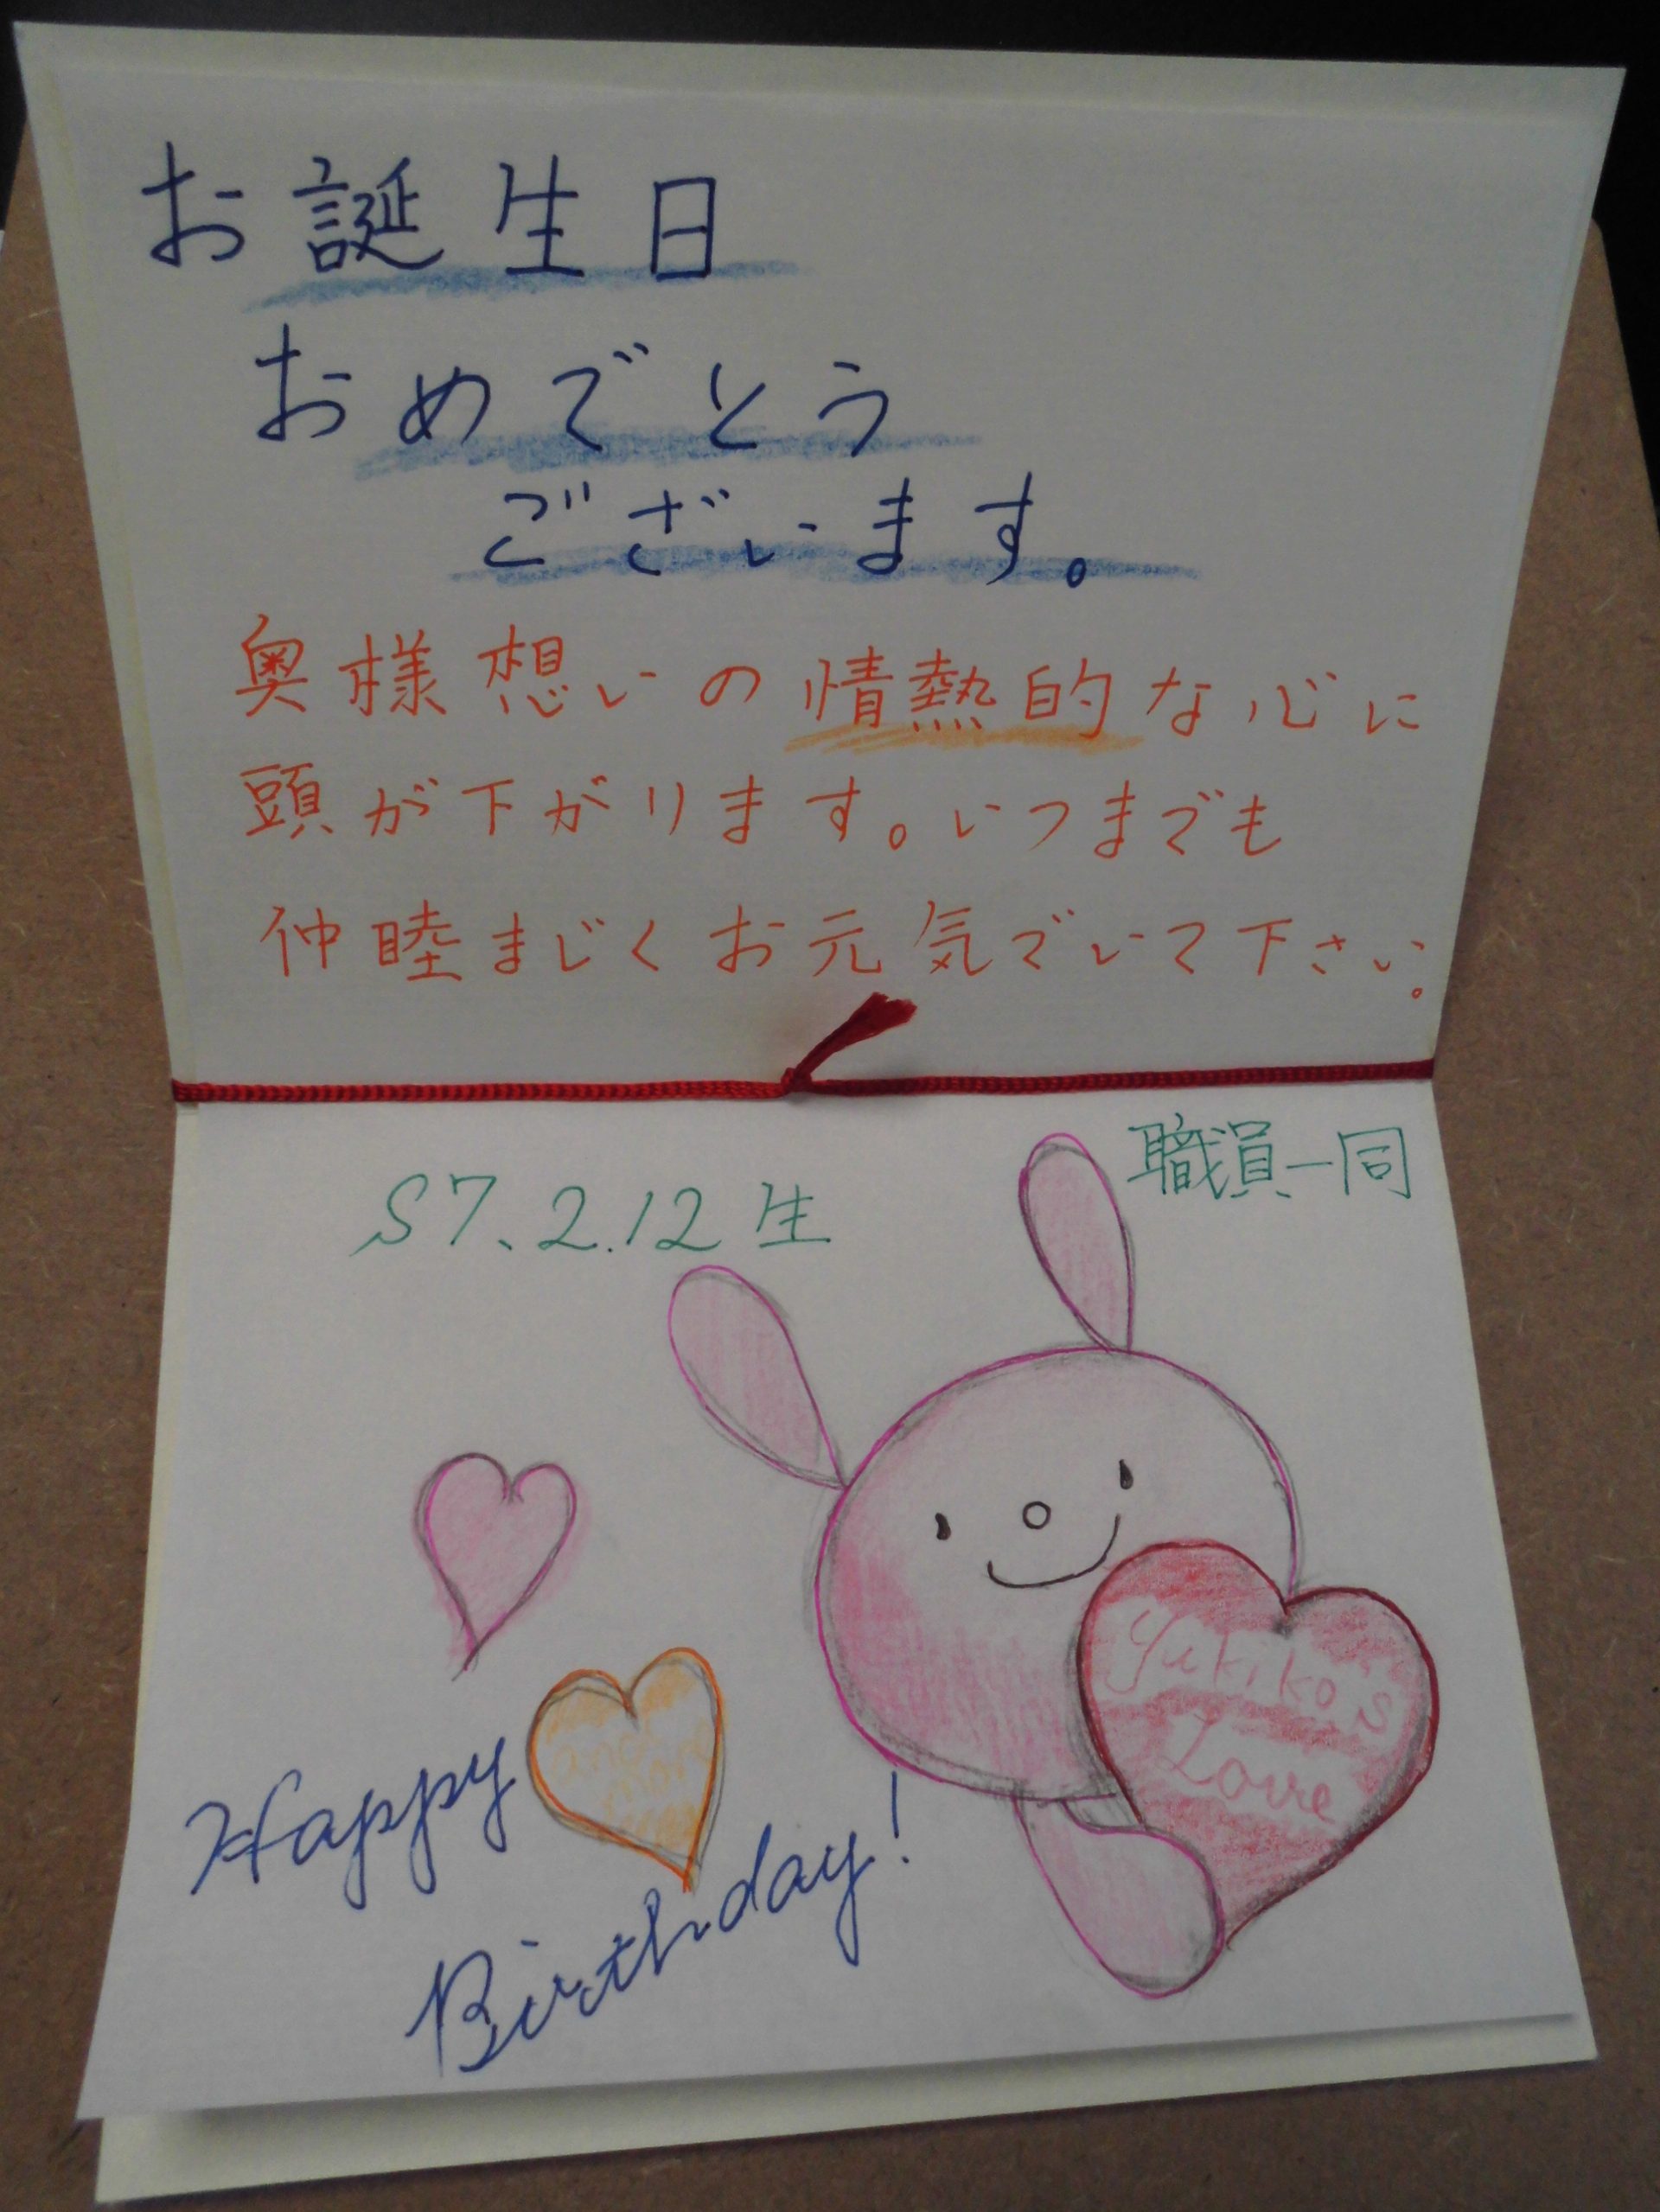 お誕生日
おめでとう
ございます。
奥様想いの情熱的な心に
頭が下がります。いつまでも
仲睦まじくお元気でいて下さい。
職員一同
S7、2.12生
Yukiko's
Love
and
Happy
Birthday!